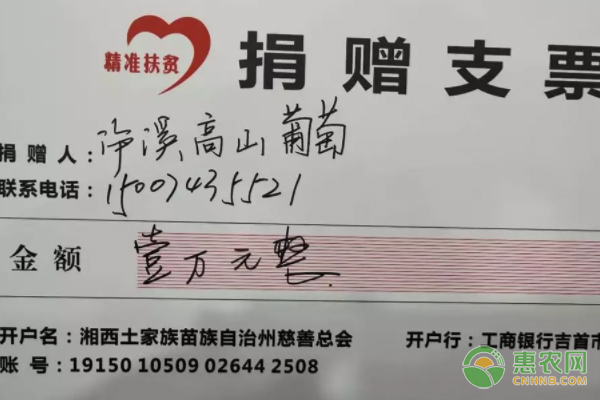 精准扶贫
捐赠支票
捐赠人：泸溪高山葡萄
联系电话：15007435521
金额 壹万元整
开户名：湘西土家族苗族自治州慈善总会 开户行：工商银行吉首市
账 号：19150 10509 02644 2508
惠农网
CNHNB.COM